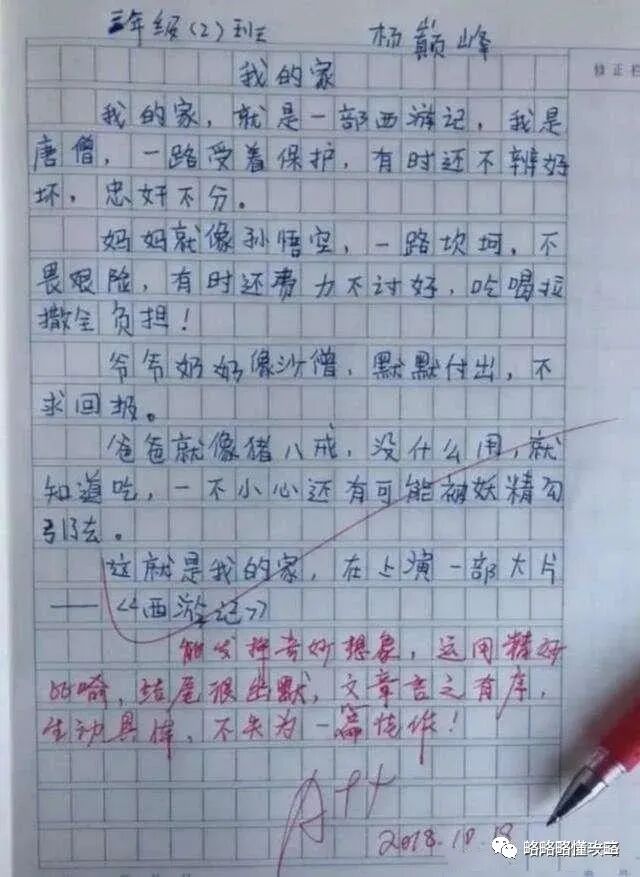 三年级(2)班 杨巅峰
我的家
修正栏
我的家，就是一部西游记，我是
唐僧，一路受着保护，有时还不辨好
坏，忠奸不分。
妈妈就像孙悟空，一路坎坷，不
畏艰险，有时还费力不讨好，吃喝拉
撒全负担！
爷爷奶奶像沙僧，默默付出，不
求回报。
爸爸就像猪八戒，没什么用，就
知道吃，一不小心还有可能被妖精勾
引去。
这就是我的家，在上演一部大片
——《西游记》
能发挥奇妙想象，运用精妙
的喻，结尾很幽默，文章言之有序，
生动具体，不失为一篇佳作！
A++
2018.10.18
略略略懂攻略